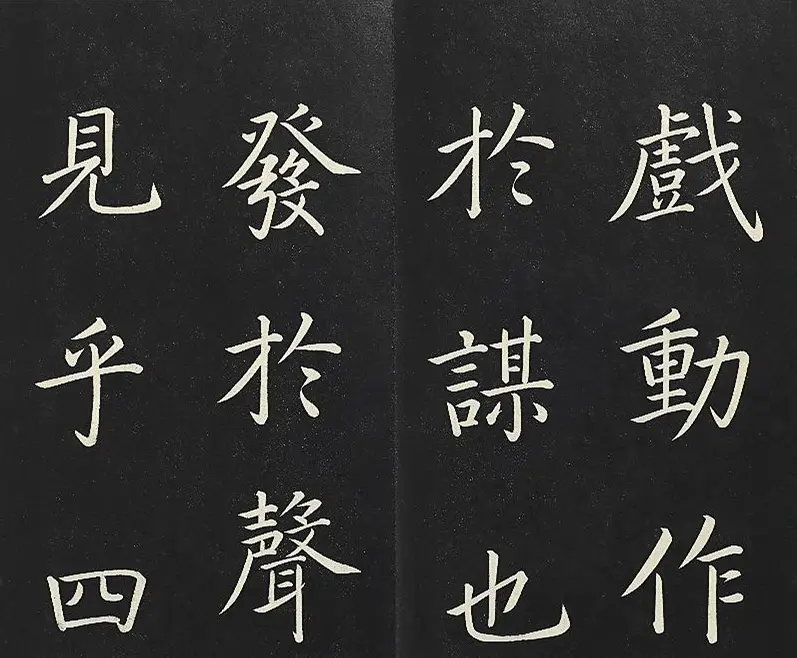 戲動作
於謀也
發於聲
見乎四